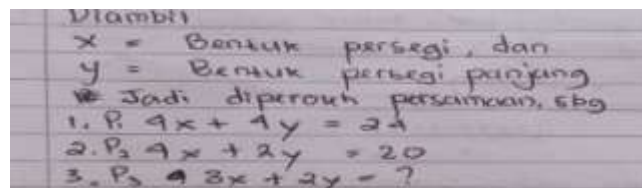 Diambil
x = Bentuk persegi, dan
y = Bentuk persegi panjang
Jadi diperoleh persamaan, sbg
1. P₁ 4x + 4y = 24
2. P₂ 4x + 2y = 20
3. P₃ 3x + 2y = ?